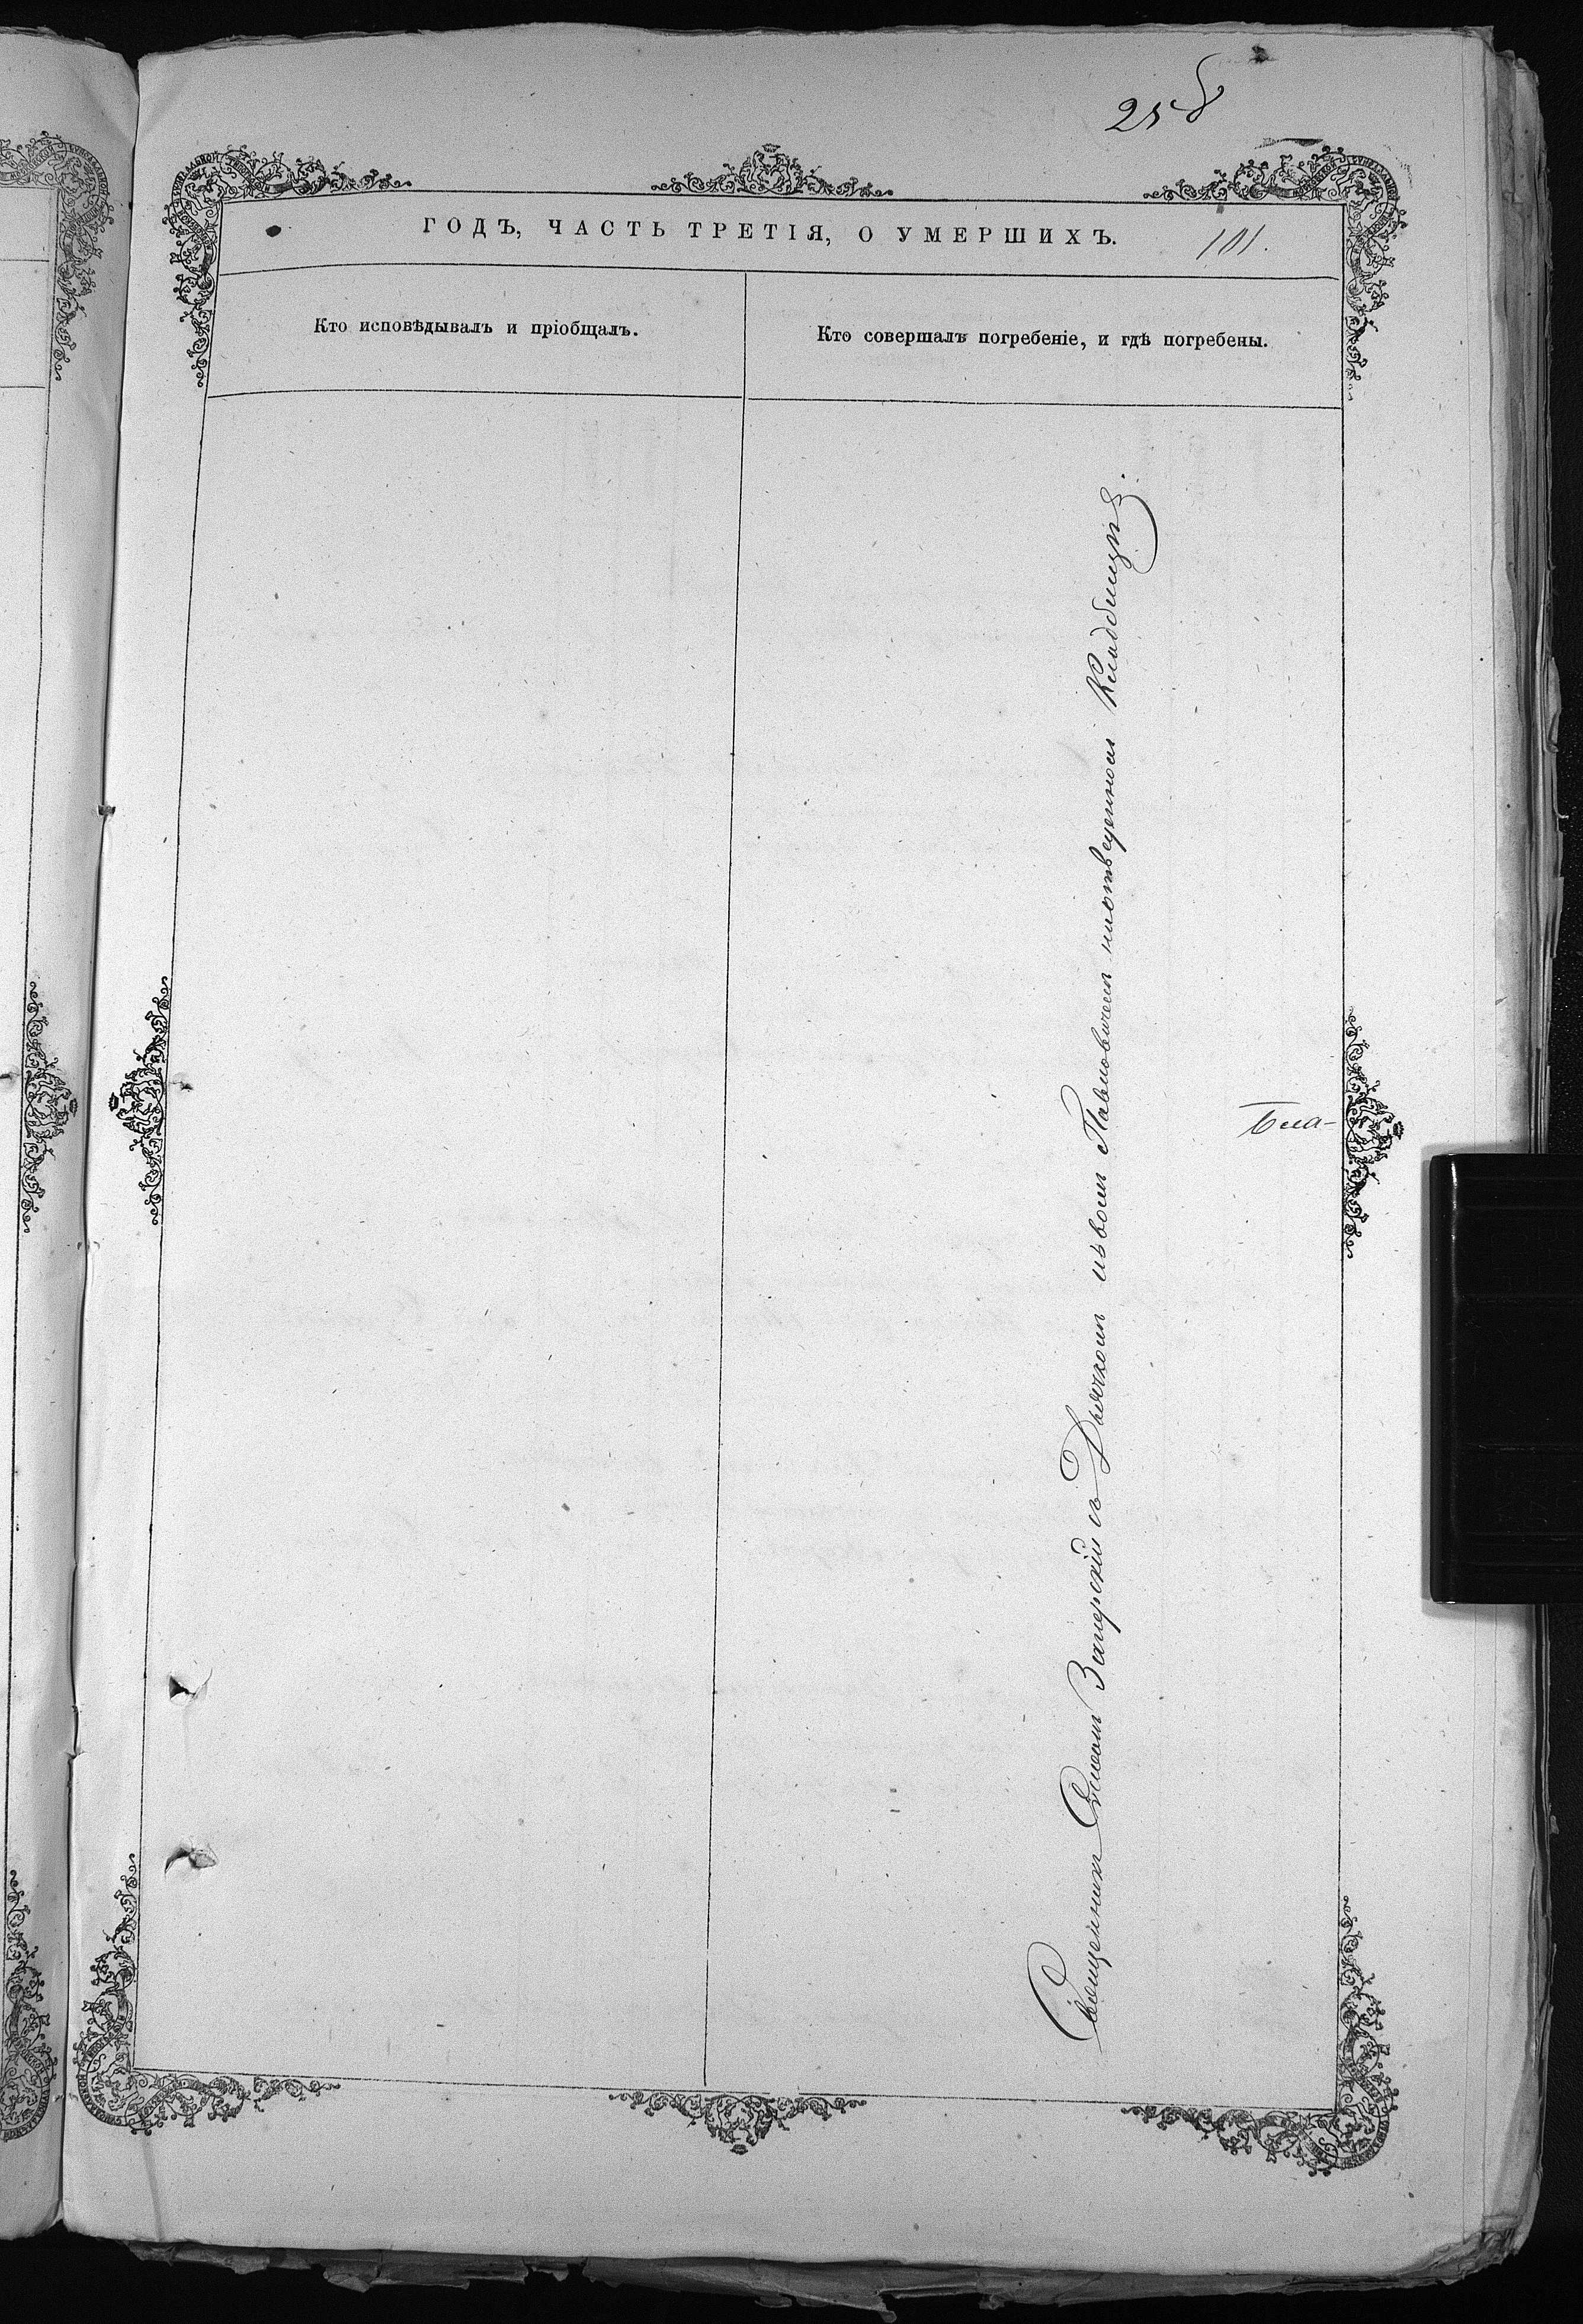 258
ГОДЪ, ЧАСТЬ ТРЕТІЯ, О УМЕРШИХЪ.
101.
Кто исповѣдывалъ и пріобщалъ.
Кто совершалъ погребеніе, и гдѣ погребены.
Священникъ Симеонъ съ Дьячкомъ Павловичемъ на отведенномъ Кладбищѣ.
Бла-